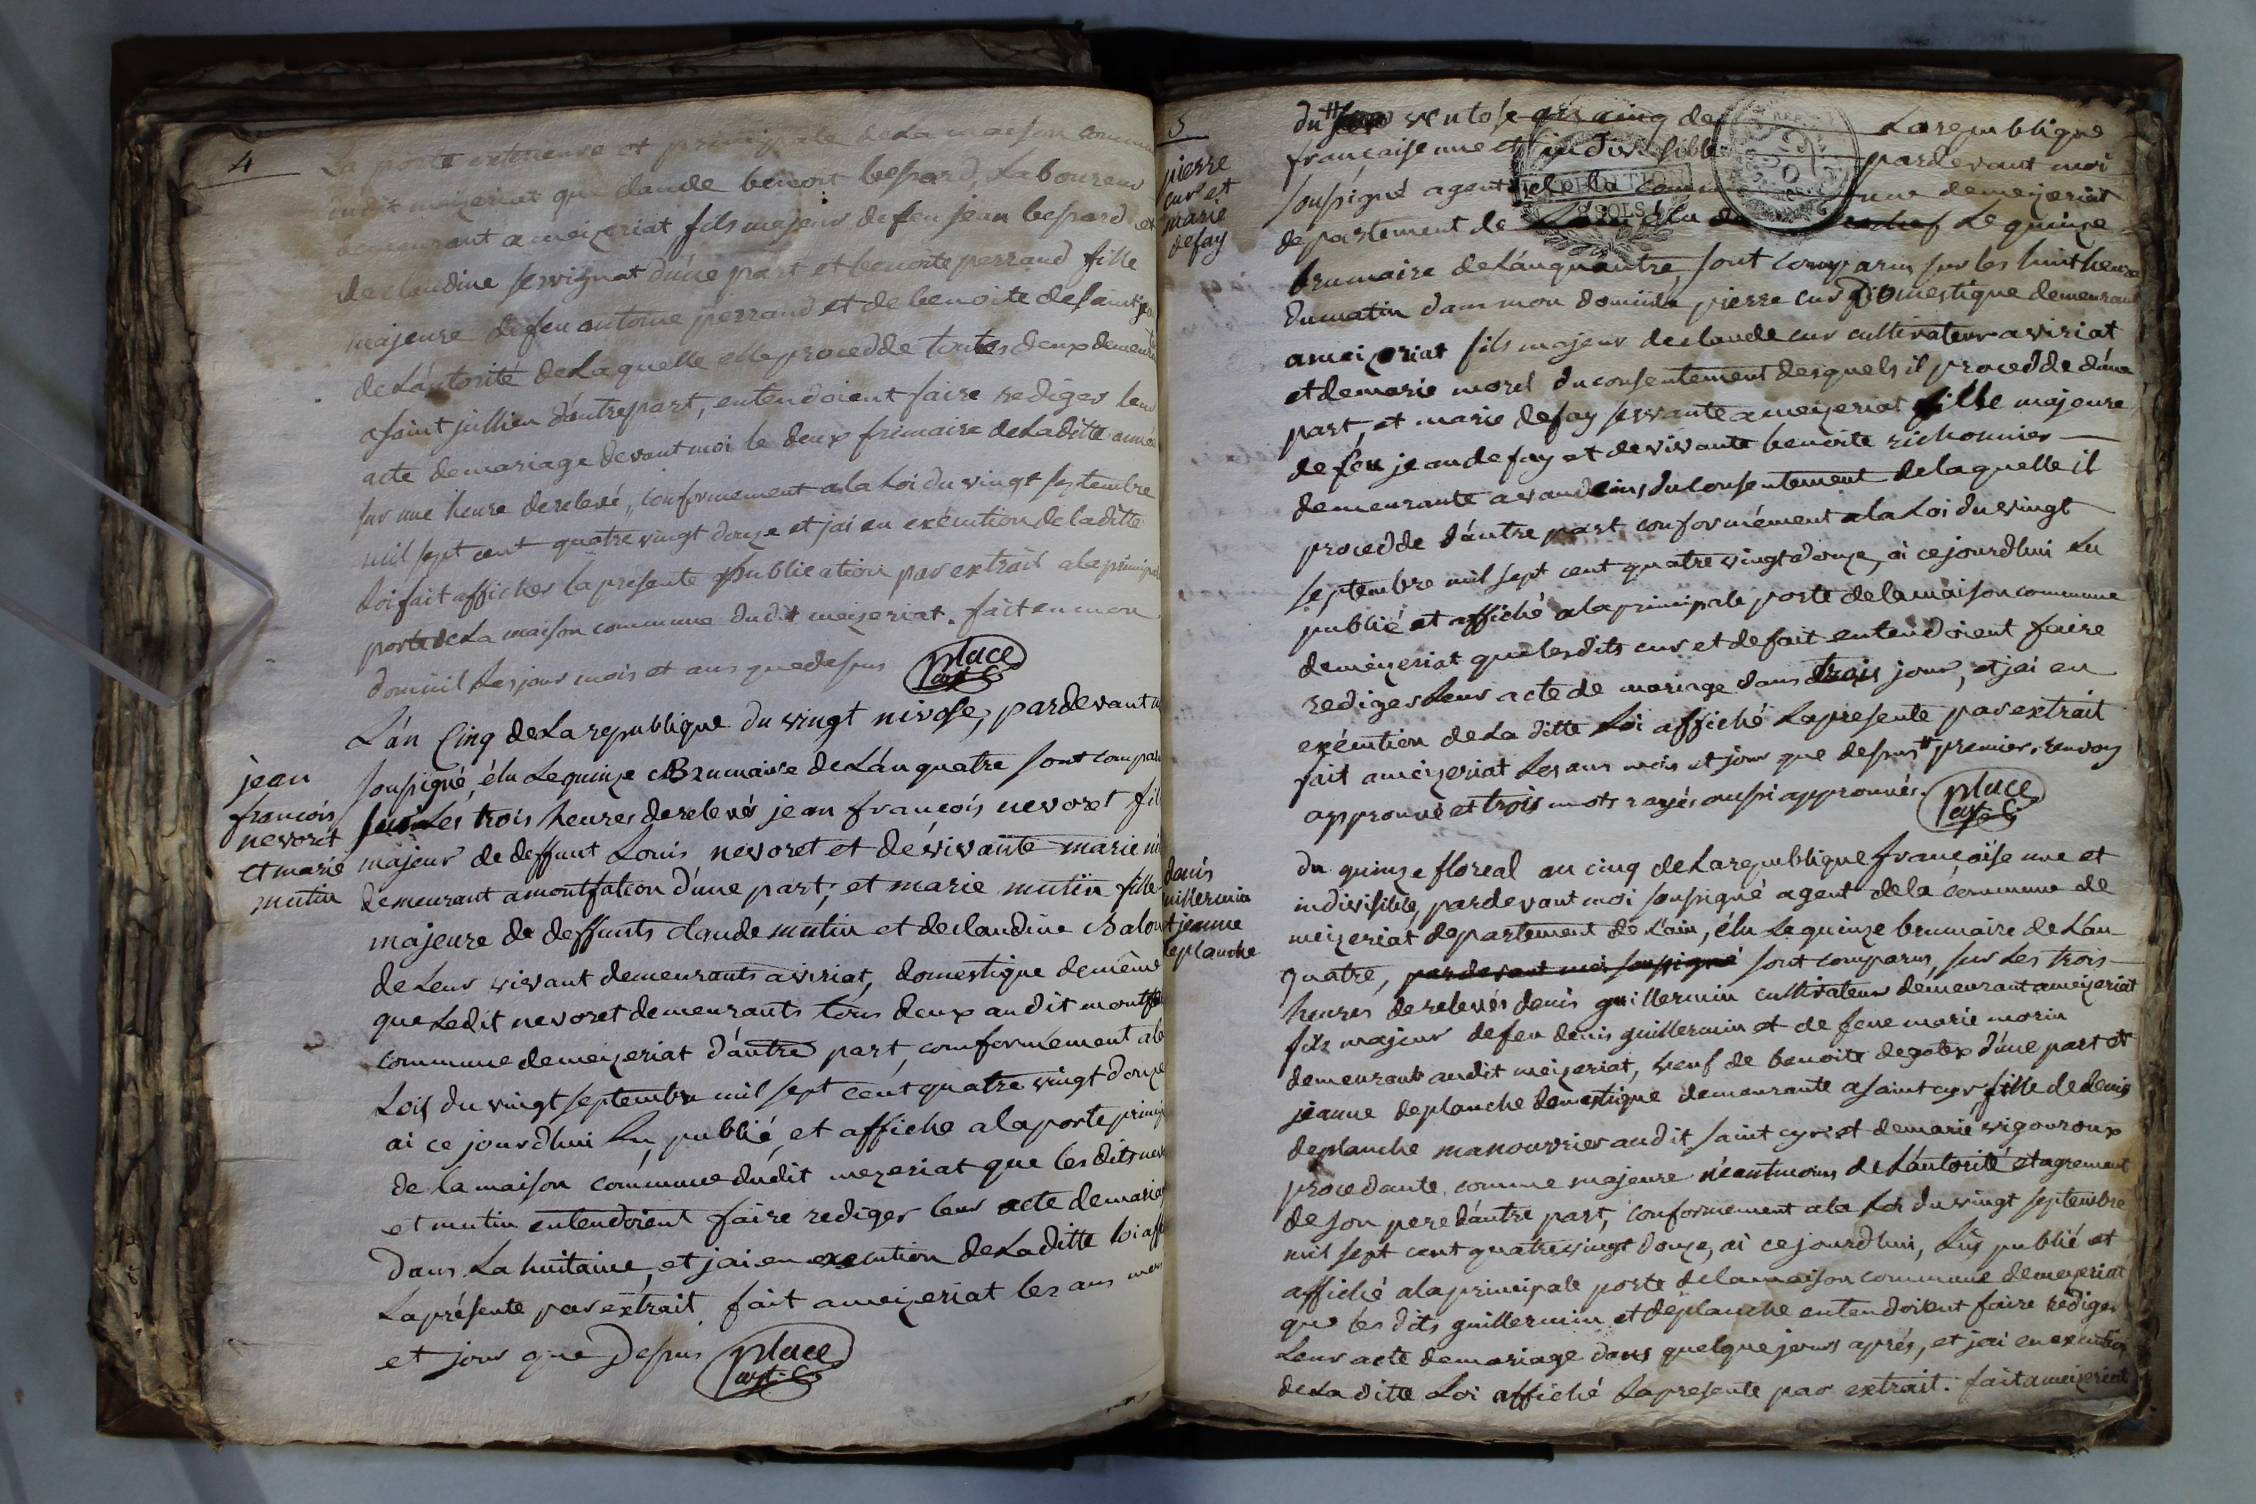 4
La porte exterieure et principale de La maison commu
dudit meizeriat que claude benoit bessard, Laboureur
demeurant a meizeriat fils majeur de feu jean bessard et
de claudine servignat d'une part et benoite perraud fille
majeure de feu antoine perraud et de benoite de saint
de L'autorité de Laquelle elle procedde toutes deux demeu
a saint jullien d'autre part, entendoient faire rediger leur
acte de mariage devant moi le deux frimaire de La ditte année
sur une heure de relevé, conformement a la Loi du vingt septembre
mil sept cent quatre vingt douze et jai en exécution de la ditte
Loi fait afficher la presente publication par extrait a la principal
porte de La maison commune dudit meizeriat. fait en mon
domicil Les jour mois et ans que desus place
agt. C.
jean
francois
nevoret
et marie
mutin
L'an Cinq de La republique du vingt nivose, pardevant
soussigné, élu Le quinze Brumaire de L'an quatre sont compar
sur Les trois heures de relevés jean françois nevoret fil
majeur de deffunt Louis nevoret et de vivante marie
demeurant a montfation d'une part; et marie mutin fille
majeure de deffunts claude mutin et de claudine Balon
de Leur vivant demeurants a viriat, domestique de même
que Ledit nevoret demeurants tous deux au dit montfa
commune de meizeriat d'autre part, conformement a la
Lois du vingt septembre mil sept cent quatre vingt douze
ai ce jourdhui Lu, publié, et affiche a la porte princip
de la maison commune dudit mezeriat que les dits nev
et mutin entendoient faire rediger leur acte de mariag
dans La huitaine, et jai en execution de La ditte loi aff
La présente par extrait fait a meizeriat les ans moi
et jour que Desus place
agt. C.
5
pierre
cur et
marie
defay
du ventose an cinq de La republique
française une et indivisible pardevant moi
soussigné agent de la commune de mezeriat
departement de Le quinze
brumaire de L'an quatre sont comparus sur les huit heures
du matin dans mon domicile pierre cur Domestique demeurant
a meizeriat fils majeur de claude cur cultivateur a viriat
et de marie morel du consentement desquels il procedde d'une
part, et marie defay servante a meizeriat fille majeure
de feu jean defay et de vivante benoite richonnier
demeurante a vandeins du consentement de laquelle il
procedde d'autre part conformément a la Loi du vingt
septembre mil sept cent quatre vingt douze, ai ce jourdhui Lu
publié et affiché a la principale porte de la maison commune
de meizeriat que lesdits cur et defait entendoient faire
rediger Leur acte de mariage dans trois jour, et jai en
exécution de La ditte Loi affiché La presente par extrait
fait a meizeriat Les ans mois et jour que dessus # premier renvoy
approuvé et trois mots rayés aussi approuvés. place
agt. C.
denis
uillermin
t jeanne
deplanche
du quinze floreal an cinq de La republique françoise une et
indivisible, pardevant moi soussigné agent de la commune de
meizeriat departement de L'ain, élu Le quinze brumaire de L'an
quatre, pardevant moi soussigné sont comparus, sur Les trois
heures de relevés denis guillermin cultivateur demeurant a meizeriat
fils majeur de feu denis guillermin et de feue marie morin
demeurant audit meizeriat, veuf de benoite degotex d'une part et
jeanne deplanche domestique demeurante a saint cyr fille de denis
deplanche manouvrier audit saint cyr et de marie vigouroux
procedante comme majeure néantmoins de L'autorité et agrement
de son pere d'autre part, conformement a la Loi du vingt septembre
mil sept cent quatre vingt douze, ai ce jourdhui, Lu, publié et
affiché a la principale porte de la maison commune de mezeriat
que les dits guillermin et deplanche entendoient faire rediger
Leur acte de mariage dans quelque jours aprés, et jai en execution
de La ditte Loi affiché La presente par extrait. fait a meizeriat